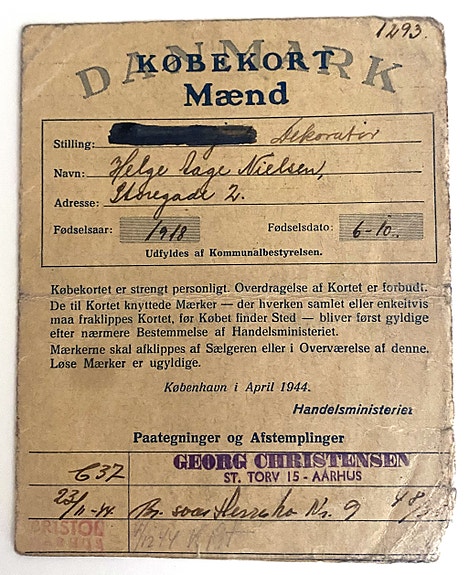 1293.
DANMARK
KØBEKORT
Mænd
Stilling: Dekoratør
Navn: Helge Aage Nielsen,
Adresse: Storegade 2.
Fødselsaar: 1918 Fødselsdato: 6-10.
Udfyldes af Kommunalbestyrelsen.
Købekortet er strengt personligt. Overdragelse af Kortet er forbudt.
De til Kortet knyttede Mærker — der hverken samlet eller enkeltvis
maa fraklippes Kortet, før Købet finder Sted — bliver først gyldige
efter nærmere Bestemmelse af Handelsministeriet.
Mærkerne skal afklippes af Sælgeren eller i Overværelse af denne.
Løse Mærker er ugyldige.
København i April 1944.
Handelsministeriet
Paategninger og Afstemplinger
637 GEORG CHRISTENSEN
ST. TORV 15 - AARHUS
23/11-44 Br. svær Herresko Nr. 9 48/
BRISTOL
AARHUS